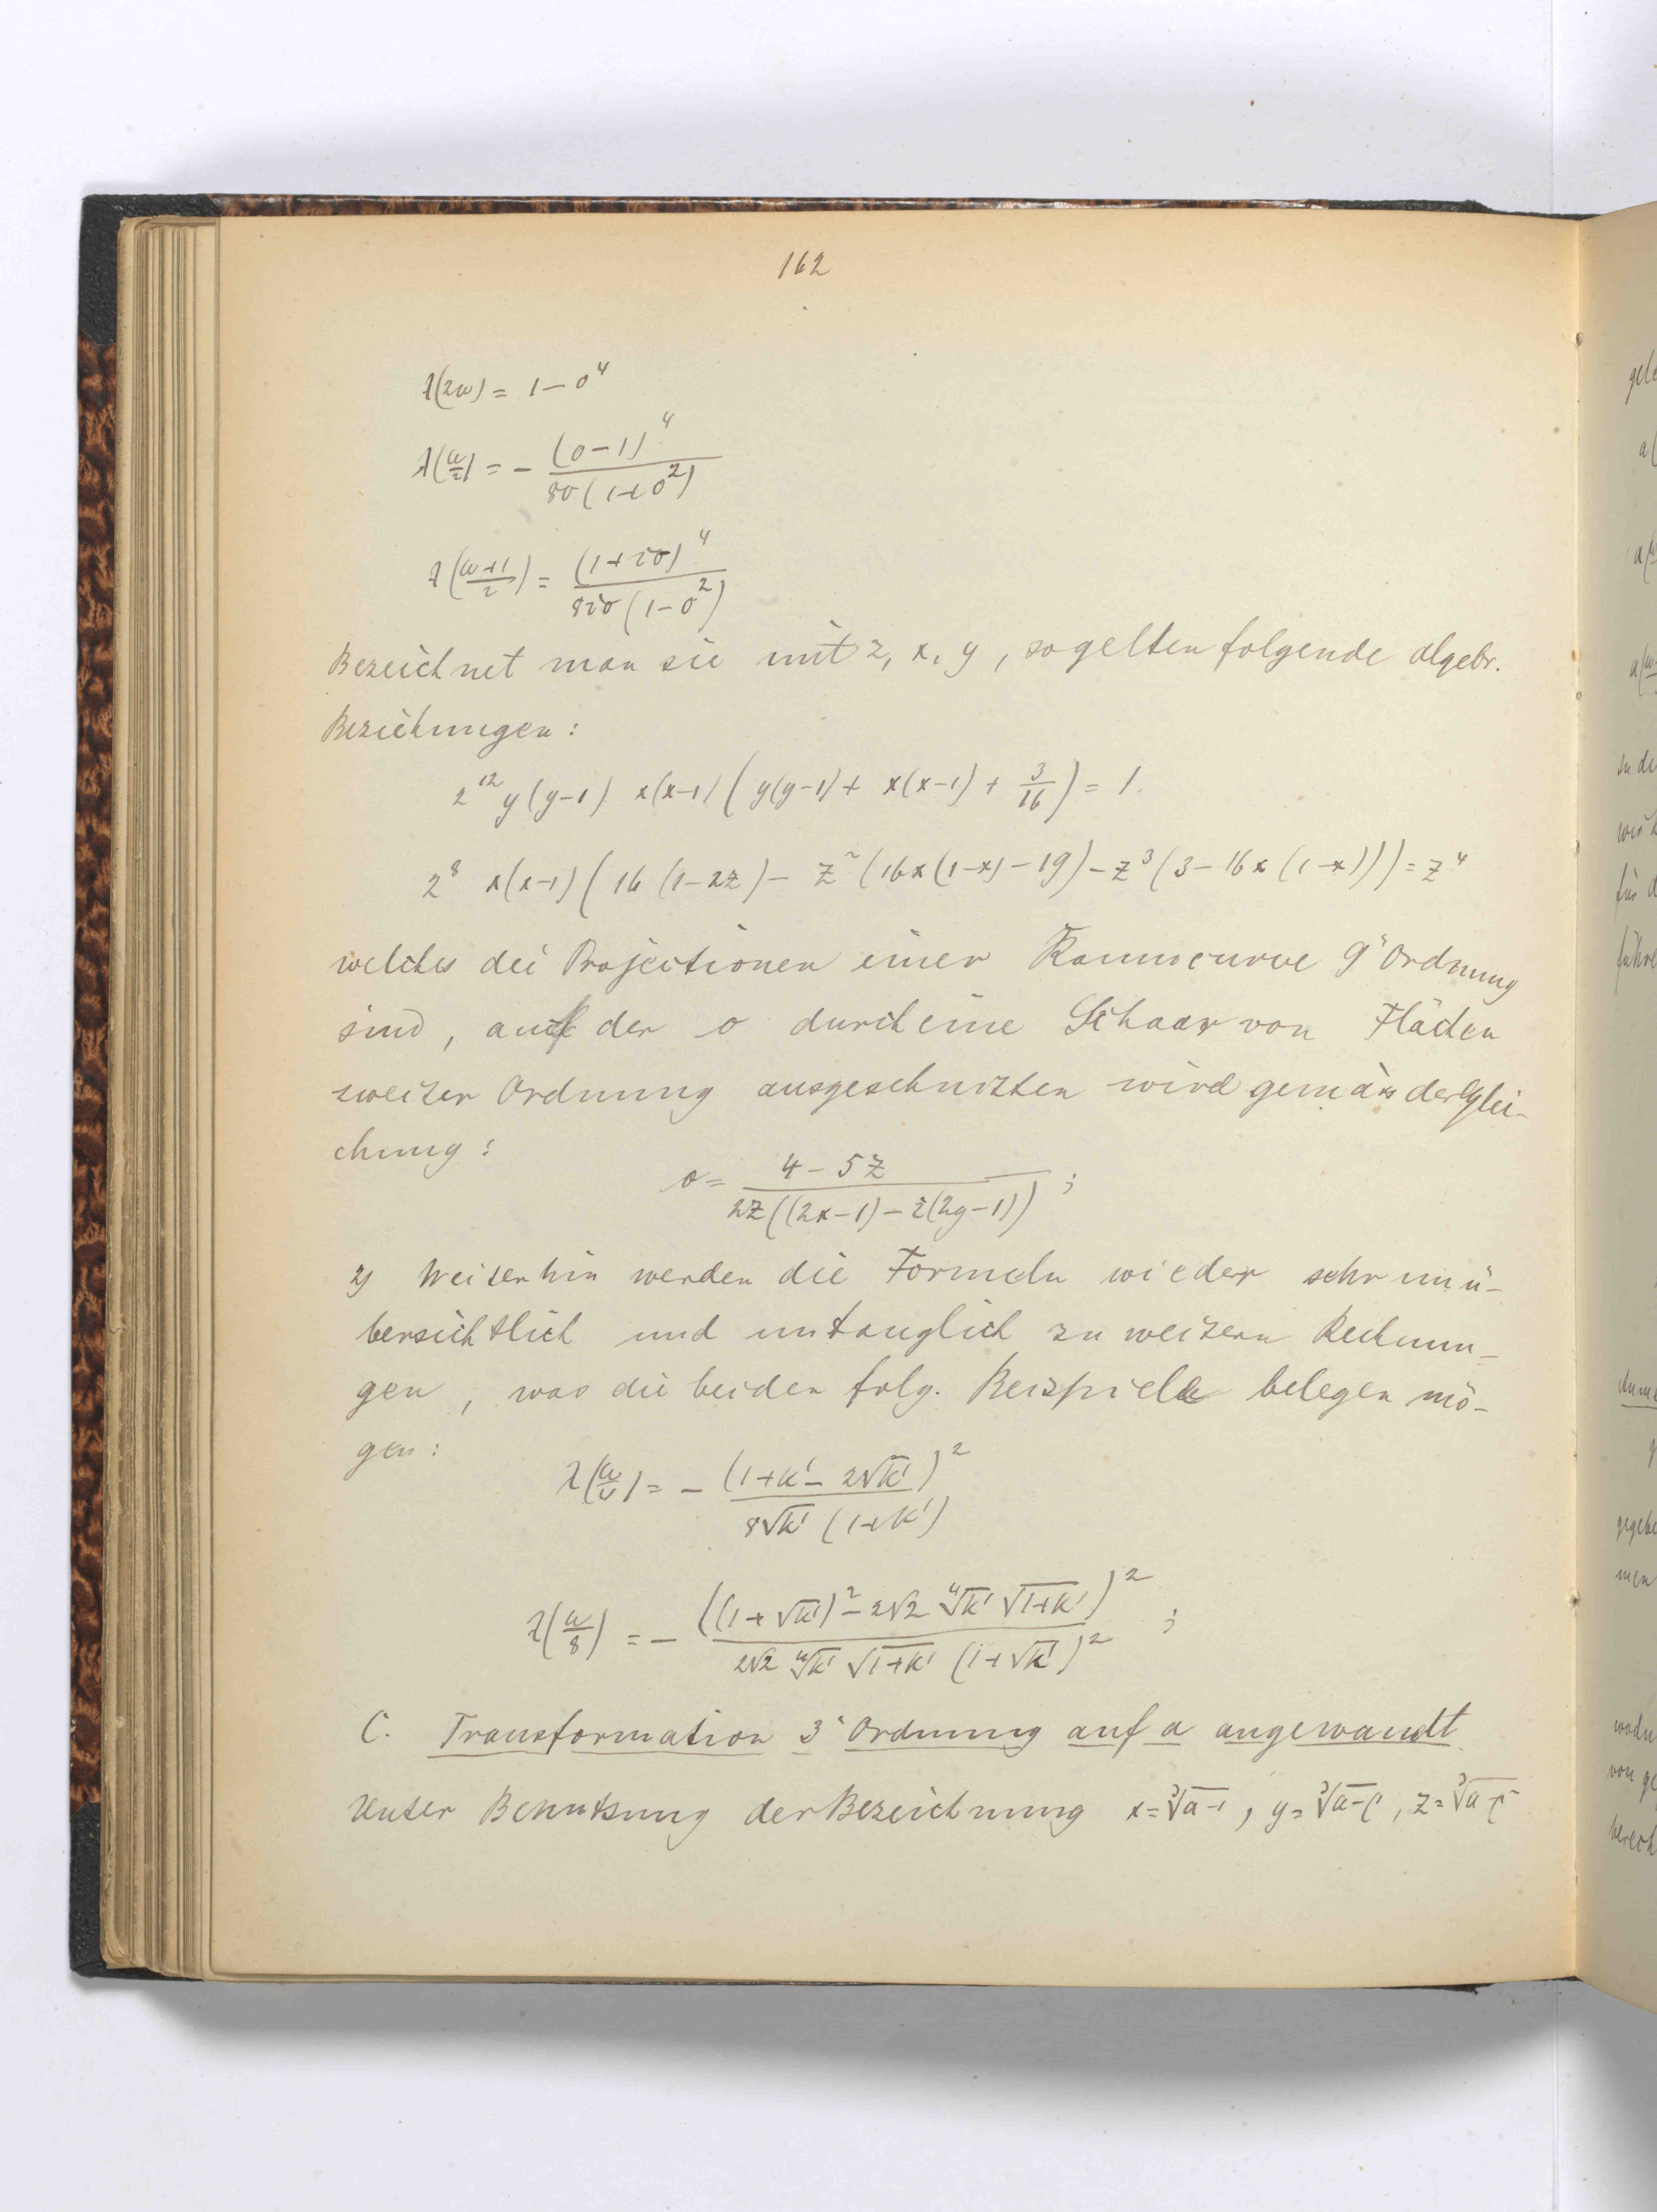 162
λ(2ω) = 1 − σ⁴
λ(ω/2) = − (σ−1)⁴ / 8σ(1+σ²)
λ((ω+1)/2) = (1+iσ)⁴ / 8iσ(1−σ²)
Bezeichnet man sie mit z, x, y, so gelten folgende algebr.
Beziehungen:
2¹² y(y−1) x(x−1) ( y(y−1) + x(x−1) + 3/16 ) = 1.
2⁸ x(x−1) ( 16 (1−2z) − z² (16x(1−x) − 19) − z³ (3 − 16x (1−x))) = z⁴
welches die Projectionen einer Raumcurve 9ᵗ Ordnung
sind, auf der σ durch eine Schaar von Flächen
zweiter Ordnung ausgeschnitten wird gemäss der Glei-
chung:
σ = (4 − 5z) / 2z((2x−1) − i(2y−1)) ;
2) Weiterhin werden die Formeln wieder sehr unü-
bersichtlich und untauglich zu weitern Rechnun-
gen, was die beiden folg. Beispiele belegen mö-
gen:
λ(ω/4) = − (1+k′ − 2√k′)² / 8√k′ (1+k′)
λ(ω/8) = − ((1+√k′)² − 2√2 ⁴√k′ √1+k′)² / 2√2 ⁴√k′ √1+k′ (1+√k′)² ;
C. Transformation 3ᵗ Ordnung auf a angewandt
Unter Benutzung der Bezeichnung x = ³√a−1, y = ³√a−ρ, z = ³√a−